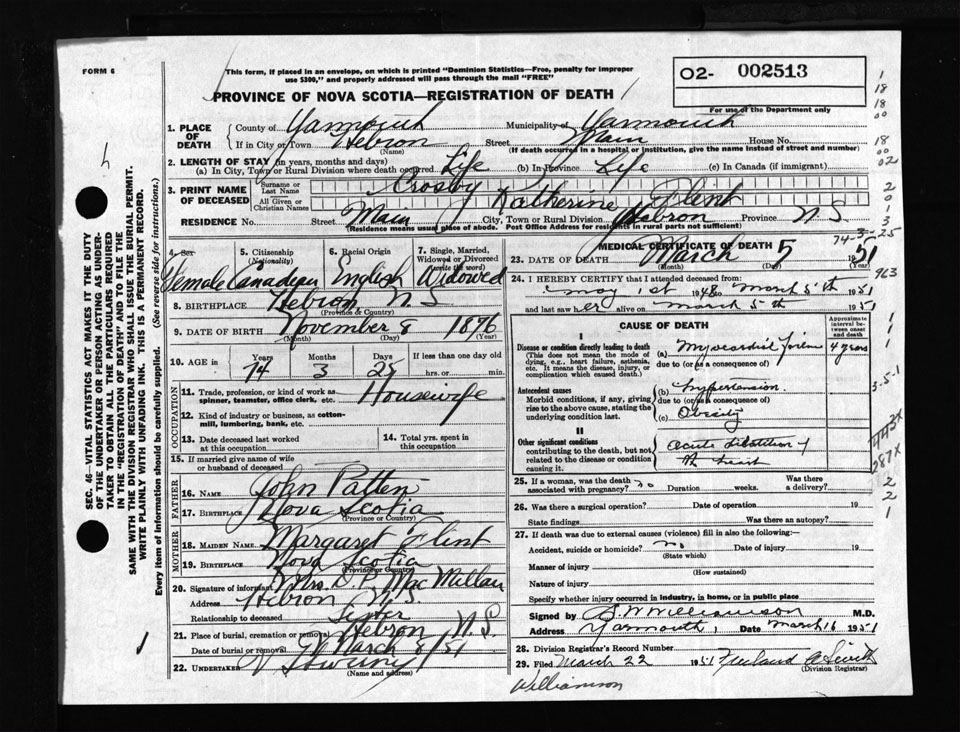 FORM 6
This form, if placed in an envelope, on which is printed "Dominion Statistics—Free, penalty for improper
use $300," and properly addressed will pass through the mail "FREE"
O2- 002513
For use of the Department only
PROVINCE OF NOVA SCOTIA—REGISTRATION OF DEATH
1. PLACE OF DEATH
County of Yarmouth Municipality of Yarmouth
If in City or Town Hebron (Name) Street Main House No.
(If death occurred in a hospital or institution, give the name instead of street and number)
2. LENGTH OF STAY (in years, months and days)
(a) In City, Town or Rural Division where death occurred Life (b) In Province Life (c) In Canada (if immigrant)
3. PRINT NAME OF DECEASED
Surname or Last Name Crosby
All Given or Christian Names Katherine Flint
RESIDENCE No. Street Main City, Town or Rural Division Hebron Province N S
(Residence means usual place of abode. Post Office Address for residents in rural parts not sufficient)
4. Sex Female
5. Citizenship (Nationality) Canadian
6. Racial Origin English
7. Single, Married, Widowed or Divorced (write the word) Widowed
8. BIRTHPLACE Hebron N S
(Province or Country)
9. DATE OF BIRTH November 8 1876
(Month) (Day) (Year)
10. AGE in Years 74 Months 3 Days 25 If less than one day old hrs. or min.
OCCUPATION
11. Trade, profession, or kind of work as spinner, teamster, office clerk, etc. Housewife
12. Kind of industry or business, as cotton-mill, lumbering, bank, etc.
13. Date deceased last worked at this occupation
14. Total yrs. spent in this occupation
15. If married give name of wife or husband of deceased
FATHER
16. NAME John Patten
17. BIRTHPLACE Nova Scotia
(Province or Country)
MOTHER
18. MAIDEN NAME Margaret Flint
19. BIRTHPLACE Nova Scotia
(Province or Country)
20. Signature of informant Mrs. D. P. MacMillan
Address Hebron N. S.
Relationship to deceased Sister
21. Place of burial, cremation or removal Hebron N. S.
Date of burial or removal March 8/51
22. UNDERTAKER V Sweeny
(Name and address)
MEDICAL CERTIFICATE OF DEATH
23. DATE OF DEATH March 5 1951
(Month) (Day) (Year)
24. I HEREBY CERTIFY that I attended deceased from:
May 1st 1948 to March 5th 1951
and last saw her alive on March 5th 1951
CAUSE OF DEATH
Approximate interval between onset and death
I
Disease or condition directly leading to death
(This does not mean the mode of dying, e.g., heart failure, asthenia, etc. It means the disease, injury, or complication which caused death.)
(a) Myocardial 4 years
due to (or as a consequence of)
Antecedent causes
Morbid conditions, if any, giving rise to the above cause, stating the underlying condition last.
(b) Hypertension.
due to (or as a consequence of)
(c) Obesity
II
Other significant conditions
contributing to the death, but not related to the disease or condition causing it.
acute dilatation of
the heart
25. If a woman, was the death associated with pregnancy? no Duration weeks. Was there a delivery?
26. Was there a surgical operation? Date of operation 19
State findings Was there an autopsy?
27. If death was due to external causes (violence) fill in also the following:
Accident, suicide or homicide? no Date of injury 19
(State which)
Manner of injury
(How sustained)
Nature of injury
Specify whether injury occurred in industry, in home, or in public place
Signed by S. W. Williamson M.D.
Address Yarmouth Date March 16 1951
28. Division Registrar's Record Number
29. Filed March 22 1951
(Division Registrar)
Williamson
SEC. 46—VITAL STATISTICS ACT MAKES IT THE DUTY
OF THE UNDERTAKER OR PERSON ACTING AS UNDER-
TAKER TO OBTAIN ALL THE PARTICULARS REQUIRED
IN THE "REGISTRATION OF DEATH" AND TO FILE THE
SAME WITH THE DIVISION REGISTRAR WHO SHALL ISSUE THE BURIAL PERMIT.
WRITE PLAINLY WITH UNFADING INK. THIS IS A PERMANENT RECORD.
Every item of information should be carefully supplied. (See reverse side for instructions.)
1
18
18
00
18
00
02
2
0
1
3
74-3-25
963
1
1
1
3-5-1
443X
287X
2
2
1